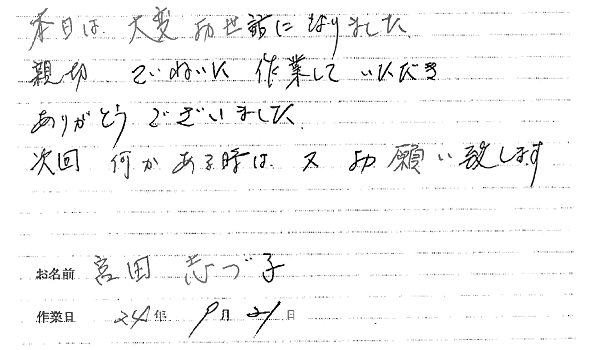 本日は 大変 お世話に なりました
親切 ていねいに 作業して いただき
ありがとう ございました。
次回 何か ある時は 又 お願い致します
お名前 宮田 志づ子
作業日 24年 9月 21日